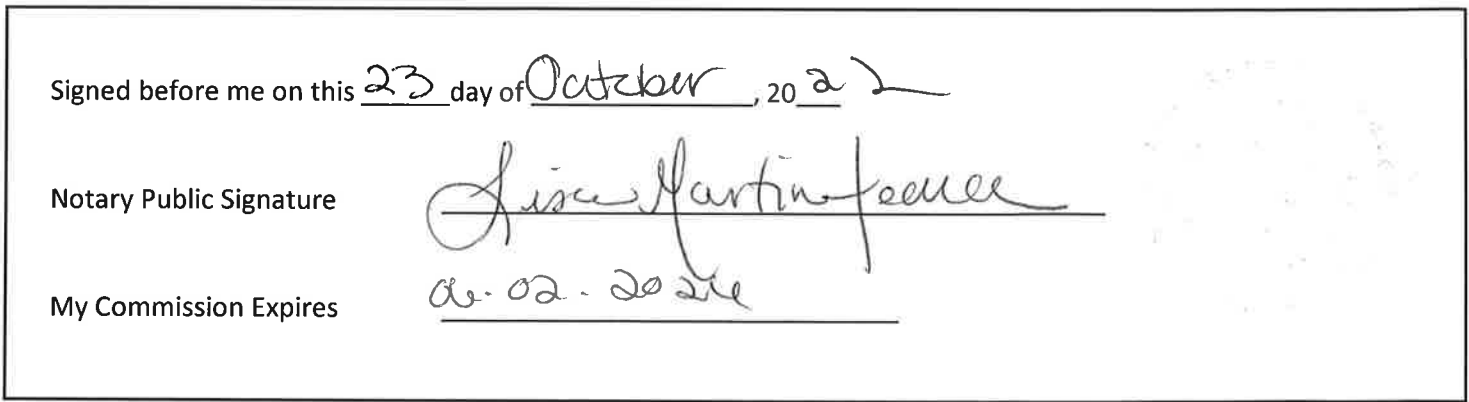 Signed before me on this 23 day of October, 2022
Notary Public Signature Lisa Martin
My Commission Expires 06.02.2026